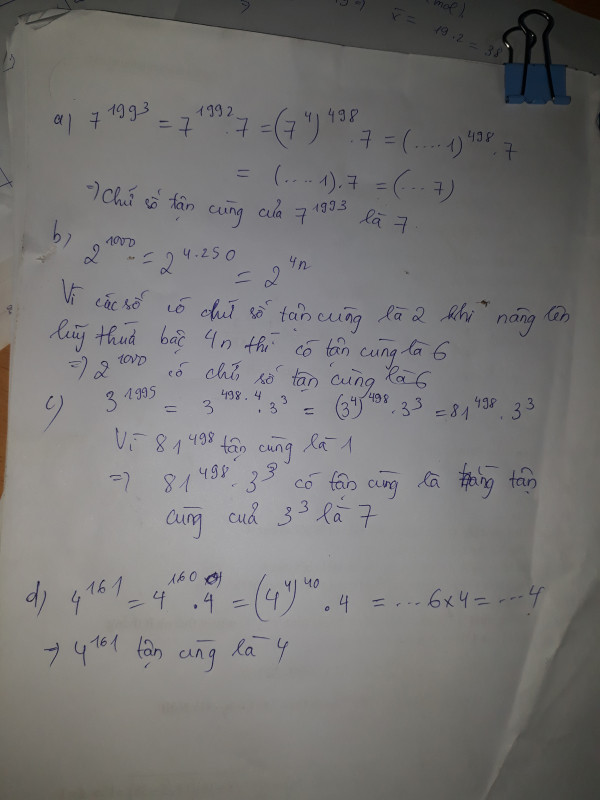 x̄ =
19.2 = 38
a) 7^1993 = 7^1992 . 7 = (7^4)^498 . 7 = (....1)^498 . 7
= (....1).7 = (...7)
=> Chữ số tận cùng của 7^1993 là 7
b) 2^1000 = 2^4.250 = 2^4n
Vì các số có chữ số tận cùng là 2 khi nâng lên
luỹ thừa bậc 4n thì có tận cùng là 6
=> 2^1000 có chữ số tận cùng là 6
c) 3^1995 = 3^498.4 . 3^3 = (3^4)^498 . 3^3 = 81^498 . 3^3
Vì 81^498 tận cùng là 1
=> 81^498 . 3^3 có tận cùng là tận
cùng cuả 3^3 là 7
d) 4^161 = 4^160 . 4 = (4^4)^40 . 4 = ...6x4 = ...4
-> 4^161 tận cùng là 4